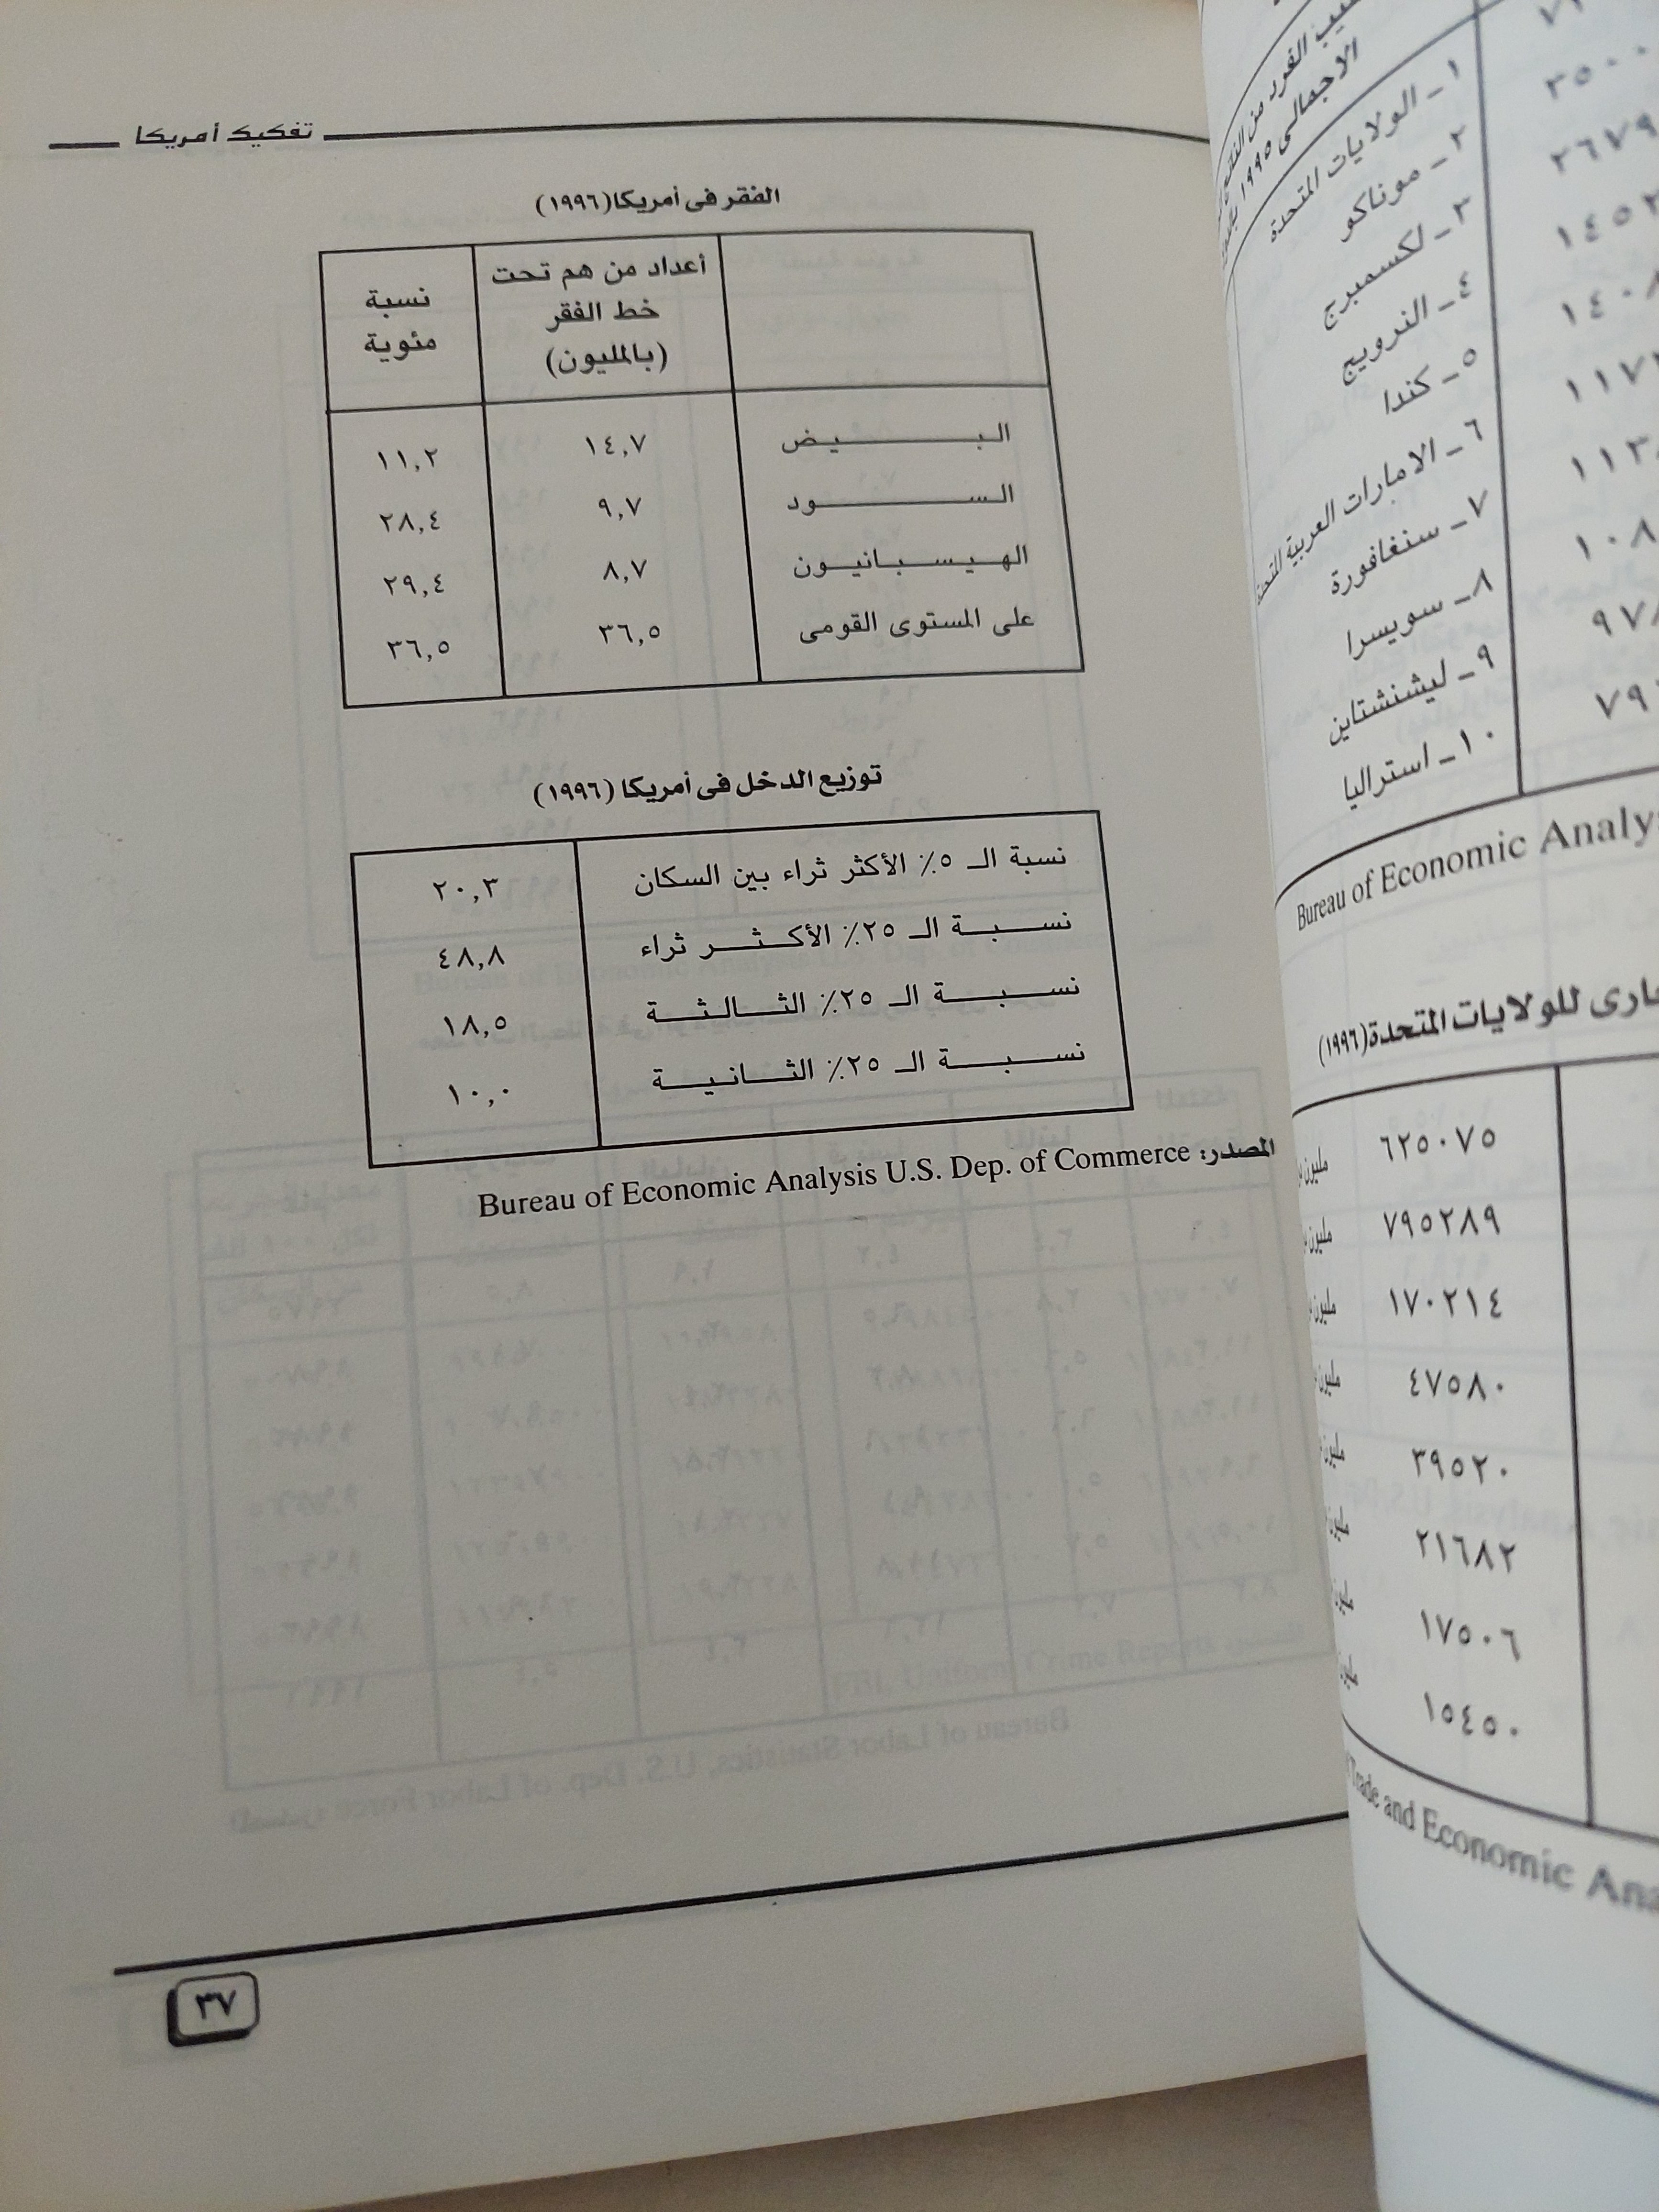 تفكيك أمريكا
الفقر فى أمريكا (١٩٩٦)
أعداد من هم تحت خط الفقر (بالمليون) نسبة مئوية
البيض ١٤,٧ ١١,٢
السود ٩,٧ ٢٨,٤
الهيسبانيون ٨,٧ ٢٩,٤
على المستوى القومى ٣٦,٥ ٣٦,٥
توزيع الدخل فى أمريكا (١٩٩٦)
نسبة الـ ٥٪ الأكثر ثراء بين السكان ٢٠,٣
نسبة الـ ٢٥٪ الأكثر ثراء ٤٨,٨
نسبة الـ ٢٥٪ الثالثة ١٨,٥
نسبة الـ ٢٥٪ الثانية ١٠,٠
المصدر: Bureau of Economic Analysis U.S. Dep. of Commerce
٣٧
الفرد من
الاجمالى ١٩٩٥
١ـ الولايات المتحدة
٢ـ موناكو ٣٥٠٠
٣ـ لكسمبرج ٢٦٧٩
٤ـ النرويج ١٤٥٢
٥ـ كندا ١٤٠٨
٦ـ الامارات العربية المتحدة ١١٧
٧ـ سنغافورة ١١٣
٨ـ سويسرا ١٠٨
٩ـ ليشنشتاين ٩٧
١٠ـ استراليا ٧٩
Bureau of Economic
للولايات المتحدة (١٩٩٦)
٦٢٥٠٧٥ مليون
٧٩٥٢٨٩ مليون
١٧٠٢١٤ مليون
٤٧٥٨٠ مليون
٣٩٥٢٠ مليون
٢١٦٨٢
١٧٥٠٦
١٥٤٥٠
Trade and Economic